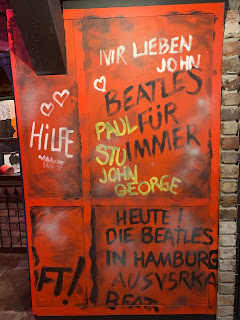 WIR LIEBEN
JOHN
BEATLES
FÜR
IMMER
PAUL
STU
JOHN
GEORGE
HiLFE
HEUTE!
DIE BEATLES
IN HAMBURG
AUSV5RKA
BEAT
FT!